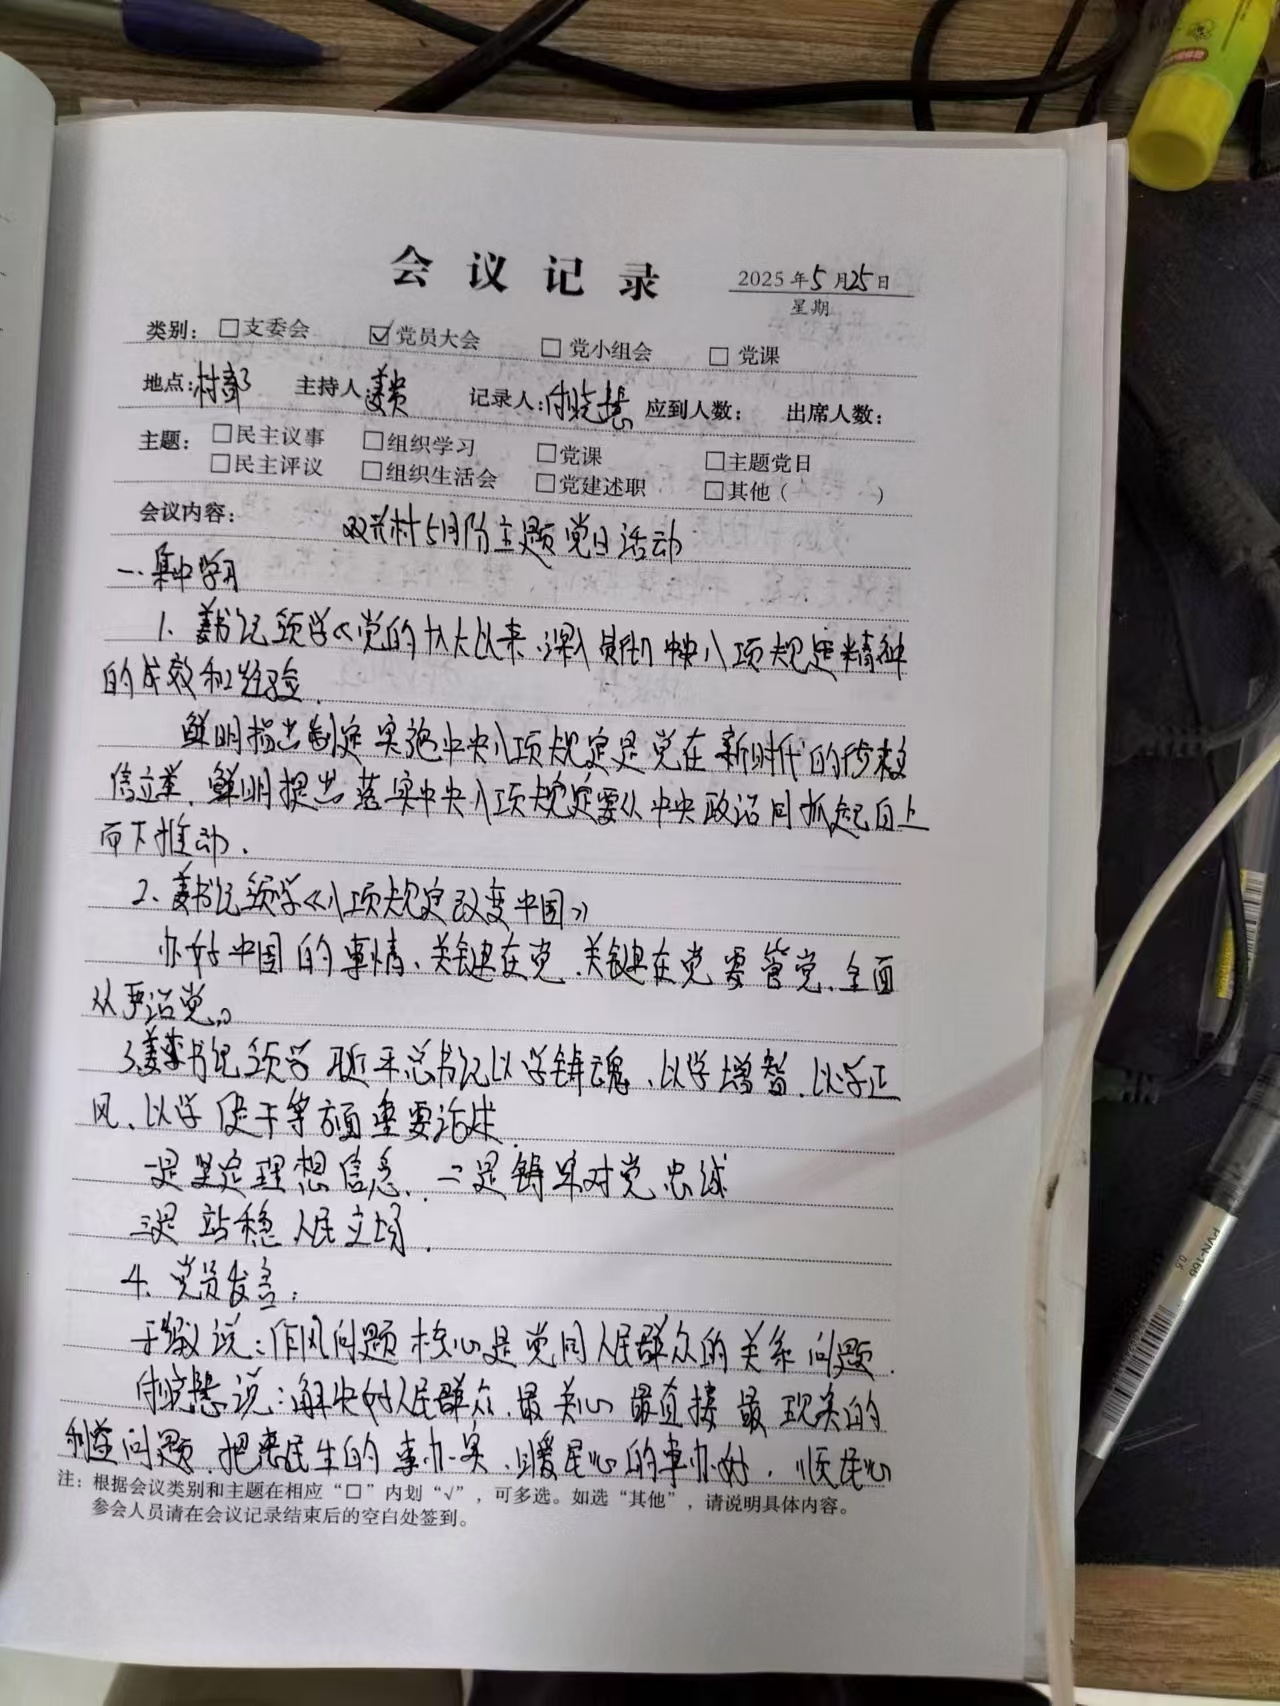 会议记录
2025年5月25日
星期
类别：□支委会 ☑党员大会 □党小组会 □党课
地点：村部 主持人：姜贵 记录人：付晓慧 应到人数： 出席人数：
主题：□民主议事 □组织学习 □党课 □主题党日
□民主评议 □组织生活会 □党建述职 □其他（ ）
会议内容： 双兴村5月份主题党日活动
一.集中学习
1、姜书记领学《党的十八大以来，深入贯彻中央八项规定精神
的成效和经验.
鲜明指出制定实施中央八项规定是党在新时代的徙木
信立举，鲜明提出落实中央八项规定要从中央政治局抓起自上
而下推动.
2、姜书记领学《八项规定改变中国》
办好中国的事情、关键在党、关键在党要管党、全面
从严治党。
3、姜书记领学 近平总书记以学铸魂、以学增智、以学正
风、以学促干等方面重要论述.
一是坚定理想信念、二是铸牢对党忠诚
三是站稳人民立场.
4、党员发言：
说：作风问题核心是党同人民群众的关系问题.
付晓慧说：解决好人民群众、最关心最直接最现实的
利益问题、把惠民生的事办实、暖民心的事办好、顺民心
注：根据会议类别和主题在相应“□”内划“√”，可多选。如选“其他”，请说明具体内容。
参会人员请在会议记录结束后的空白处签到。
PVN-166
0.5